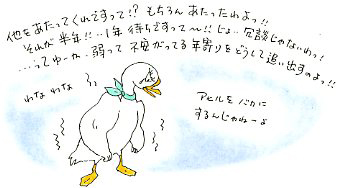 他をあたってくれですって!? もちろん あたったわよっ!!
それが 半年!!‥1年 待ちですって〜!! じょ‥冗談じゃないわっ!
‥‥ってゆーか、弱って 不安がってる年寄りをどうして追い出すのよっ!!
わな わな
アヒルをバカに
するんじゃねーよ